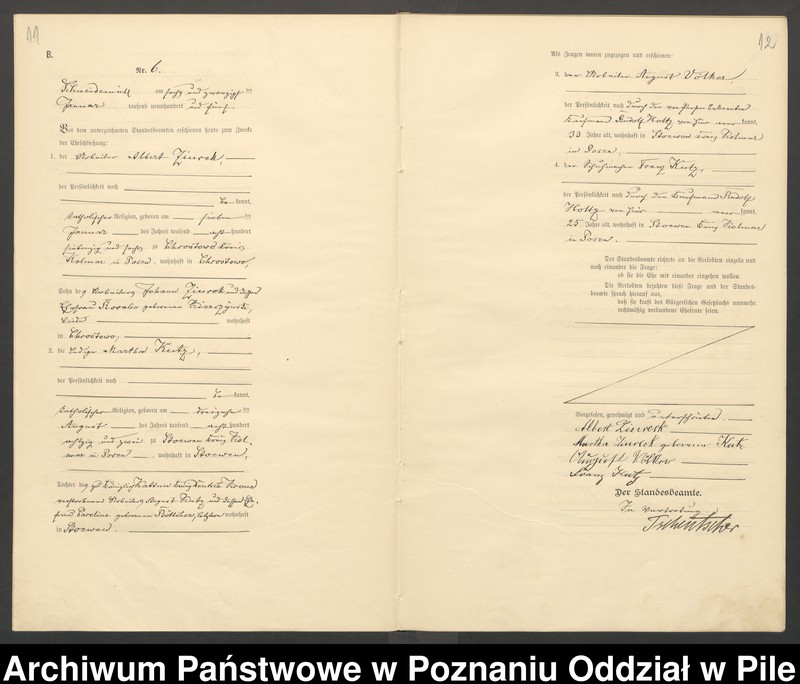 11
B.
Nr. 6.
Schneidemühl am sechs und zwanzigsten
Januar tausend neunhundert und fünf.
Vor dem unterzeichneten Standesbeamten erschienen heute zum Zwecke
der Eheschließung:
1. der Arbeiter Albert Ziureck,
der Persönlichkeit nach
be kannt,
katholischer Religion, geboren am sieben ten
Januar des Jahres tausend acht hundert
siebenzig und sechs zu Chrostowo Kreis
Kolmar in Posen, wohnhaft in Chrostowo,
Sohn des Arbeiters Johann Ziureck und dessen
Ehefrau Rosalie geborenen
beide wohnhaft
in Chrostowo,
2. die ledige Martha Kutz,
der Persönlichkeit nach
be kannt,
katholischer Religion, geboren am dreizehn ten
August des Jahres tausend acht hundert
achtzig und zwei zu Stoewen Kreis Kol-
mar in Posen, wohnhaft in Stoewen,
Tochter des zu
verstorbenen Arbeiters August Kutz und dessen Ehe-
frau Caroline geborenen Böttcher, letztere wohnhaft
in Stoewen.
12
Als Zeugen waren zugezogen und erschienen:
3. der Arbeiter August Völker,
der Persönlichkeit nach durch den
Kaufmann Rudolf Hottz von hier kannt,
33 Jahre alt, wohnhaft in Stoewen Kreis Kolmar
in Posen,
4. der Schuhmacher Franz Kutz,
der Persönlichkeit nach durch den Kaufmann Rudolf
Hottz von hier kannt,
25 Jahre alt, wohnhaft in Stoewen Kreis Kolmar
in Posen.
Der Standesbeamte richtete an die Verlobten einzeln und
nach einander die Frage:
ob sie die Ehe mit einander eingehen wollen.
Die Verlobten bejahten diese Frage und der Standes-
beamte sprach hierauf aus,
daß sie kraft des Bürgerlichen Gesetzbuchs nunmehr
rechtmäßig verbundene Eheleute seien.
Vorgelesen, genehmigt und unterschrieben.
Albert Ziureck
Martha Ziureck geborene Kutz
August Völker
Franz Kutz
Der Standesbeamte.
In Vertretung.
Archiwum Państwowe w Poznaniu Oddział w Pile